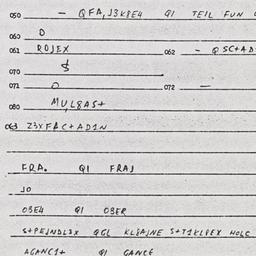 050 - QFA,J3KPE4 QI TEIL FUN
060 O
061 ROJEX 062 - QSC+AD
070 $
071 O 072 —
080 MU,L8AS+
063 Z3XFAC+AD1N
FRA. QI FRAJ
JO
O3E4 QI O3ER
S+PEJNDL3X QGL KL8AJNE S+T1KLPEX HOLC
AGANC1+ QI GANCE